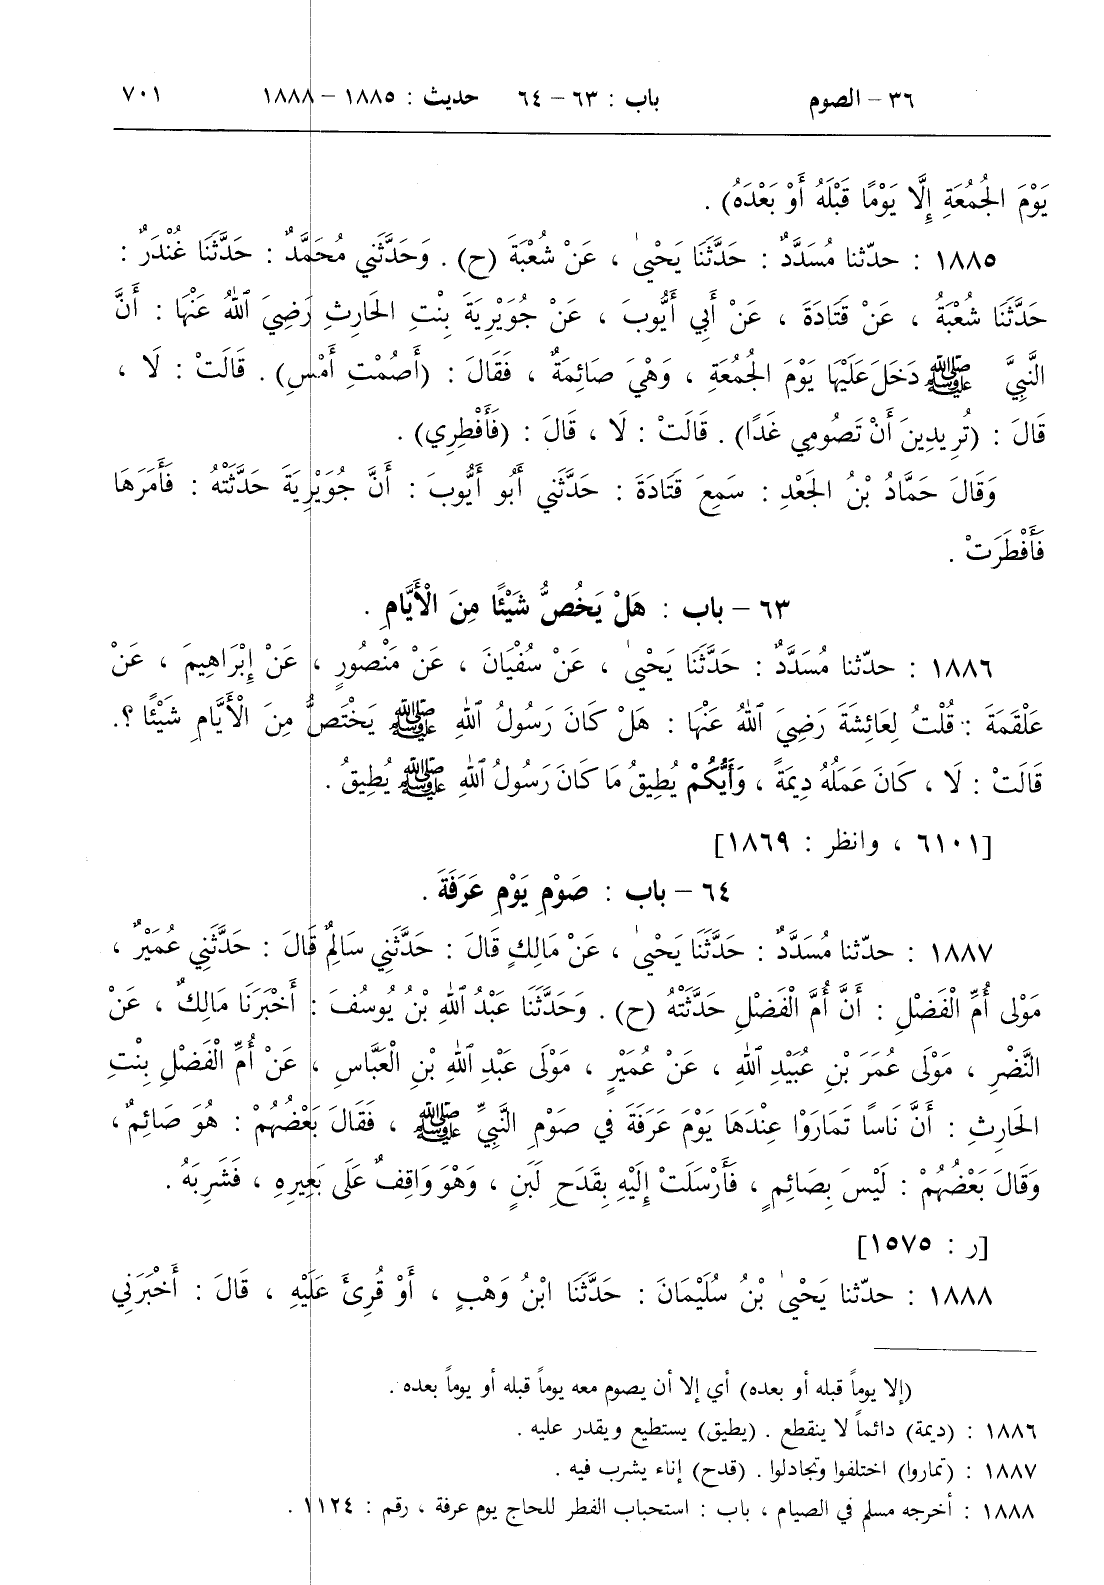 ٣٦ – الصوم باب : ٦٣ – ٦٤ حديث : ١٨٨٥ – ١٨٨٨ ٧٠١
يَوْمَ الجُمُعَةِ إِلَّا يَوْمًا قَبْلَهُ أَوْ بَعْدَهُ) .
١٨٨٥ : حدّثنا مُسَدَّدٌ : حَدَّثَنَا يَحْيىٰ ، عَنْ شُعْبَةَ (ح) . وَحَدَّثَنِي مُحَمَّدٌ : حَدَّثَنَا غُنْدَرٌ :
حَدَّثَنَا شُعْبَةُ ، عَنْ قَتَادَةَ ، عَنْ أَبِي أَيُّوبَ ، عَنْ جُوَيْرِيَةَ بِنْتِ الحَارِثِ رَضِيَ ٱللهُ عَنْهَا : أَنَّ
النَّبِيَّ ﷺ دَخَلَ عَلَيْهَا يَوْمَ الجُمُعَةِ ، وَهْيَ صَائِمَةٌ ، فَقَالَ : (أَصُمْتِ أَمْسِ) . قَالَتْ : لَا ،
قَالَ : (تُرِيدِينَ أَنْ تَصُومِي غَدًا) . قَالَتْ : لَا ، قَالَ : (فَأَفْطِرِي) .
وَقَالَ حَمَّادُ بْنُ الجَعْدِ : سَمِعَ قَتَادَةَ : حَدَّثَنِي أَبُو أَيُّوبَ : أَنَّ جُوَيْرِيَةَ حَدَّثَتْهُ : فَأَمَرَهَا
فَأَفْطَرَتْ .
٦٣ – باب : هَلْ يَخُصُّ شَيْئًا مِنَ الْأَيَّامِ .
١٨٨٦ : حدّثنا مُسَدَّدٌ : حَدَّثَنَا يَحْيىٰ ، عَنْ سُفْيَانَ ، عَنْ مَنْصُورٍ ، عَنْ إِبْرَاهِيمَ ، عَنْ
عَلْقَمَةَ : قُلْتُ لِعَائِشَةَ رَضِيَ ٱللهُ عَنْهَا : هَلْ كَانَ رَسُولُ ٱللهِ ﷺ يَخْتَصُّ مِنَ الْأَيَّامِ شَيْئًا ؟.
قَالَتْ : لَا ، كَانَ عَمَلُهُ دِيمَةً ، وَأَيُّكُمْ يُطِيقُ مَا كَانَ رَسُولُ ٱللهِ ﷺ يُطِيقُ .
[٦١٠١ ، وانظر : ١٨٦٩]
٦٤ – باب : صَوْمِ يَوْمِ عَرَفَةَ .
١٨٨٧ : حدّثنا مُسَدَّدٌ : حَدَّثَنَا يَحْيىٰ ، عَنْ مَالِكٍ قَالَ : حَدَّثَنِي سَالِمٌ قَالَ : حَدَّثَنِي عُمَيْرٌ ،
مَوْلَى أُمِّ الْفَضْلِ : أَنَّ أُمَّ الْفَضْلِ حَدَّثَتْهُ (ح) . وَحَدَّثَنَا عَبْدُ ٱللهِ بْنُ يُوسُفَ : أَخْبَرَنَا مَالِكٌ ، عَنْ
النَّضْرِ ، مَوْلَى عُمَرَ بْنِ عُبَيْدِ ٱللهِ ، عَنْ عُمَيْرٍ ، مَوْلَى عَبْدِ ٱللهِ بْنِ الْعَبَّاسِ ، عَنْ أُمِّ الْفَضْلِ بِنْتِ
الحَارِثِ : أَنَّ نَاسًا تَمَارَوْا عِنْدَهَا يَوْمَ عَرَفَةَ في صَوْمِ النَّبِيِّ ﷺ ، فَقَالَ بَعْضُهُمْ : هُوَ صَائِمٌ ،
وَقَالَ بَعْضُهُمْ : لَيْسَ بِصَائِمٍ ، فَأَرْسَلَتْ إِلَيْهِ بِقَدَحِ لَبَنٍ ، وَهْوَ وَاقِفٌ عَلَى بَعِيرِهِ ، فَشَرِبَهُ .
[ر : ١٥٧٥]
١٨٨٨ : حدّثنا يَحْيىٰ بْنُ سُلَيْمَانَ : حَدَّثَنَا ابْنُ وَهْبٍ ، أَوْ قُرِئَ عَلَيْهِ ، قَالَ : أَخْبَرَنِي
(إلا يوماً قبله أو بعده) أي إلا أن يصوم معه يوماً قبله أو يوماً بعده .
١٨٨٦ : (ديمة) دائماً لا ينقطع . (يطيق) يستطيع ويقدر عليه .
١٨٨٧ : (تماروا) اختلفوا وتجادلوا . (قدح) إناء يشرب فيه .
١٨٨٨ : أخرجه مسلم في الصيام ، باب : استحباب الفطر للحاج يوم عرفة ، رقم : ١١٢٤ .